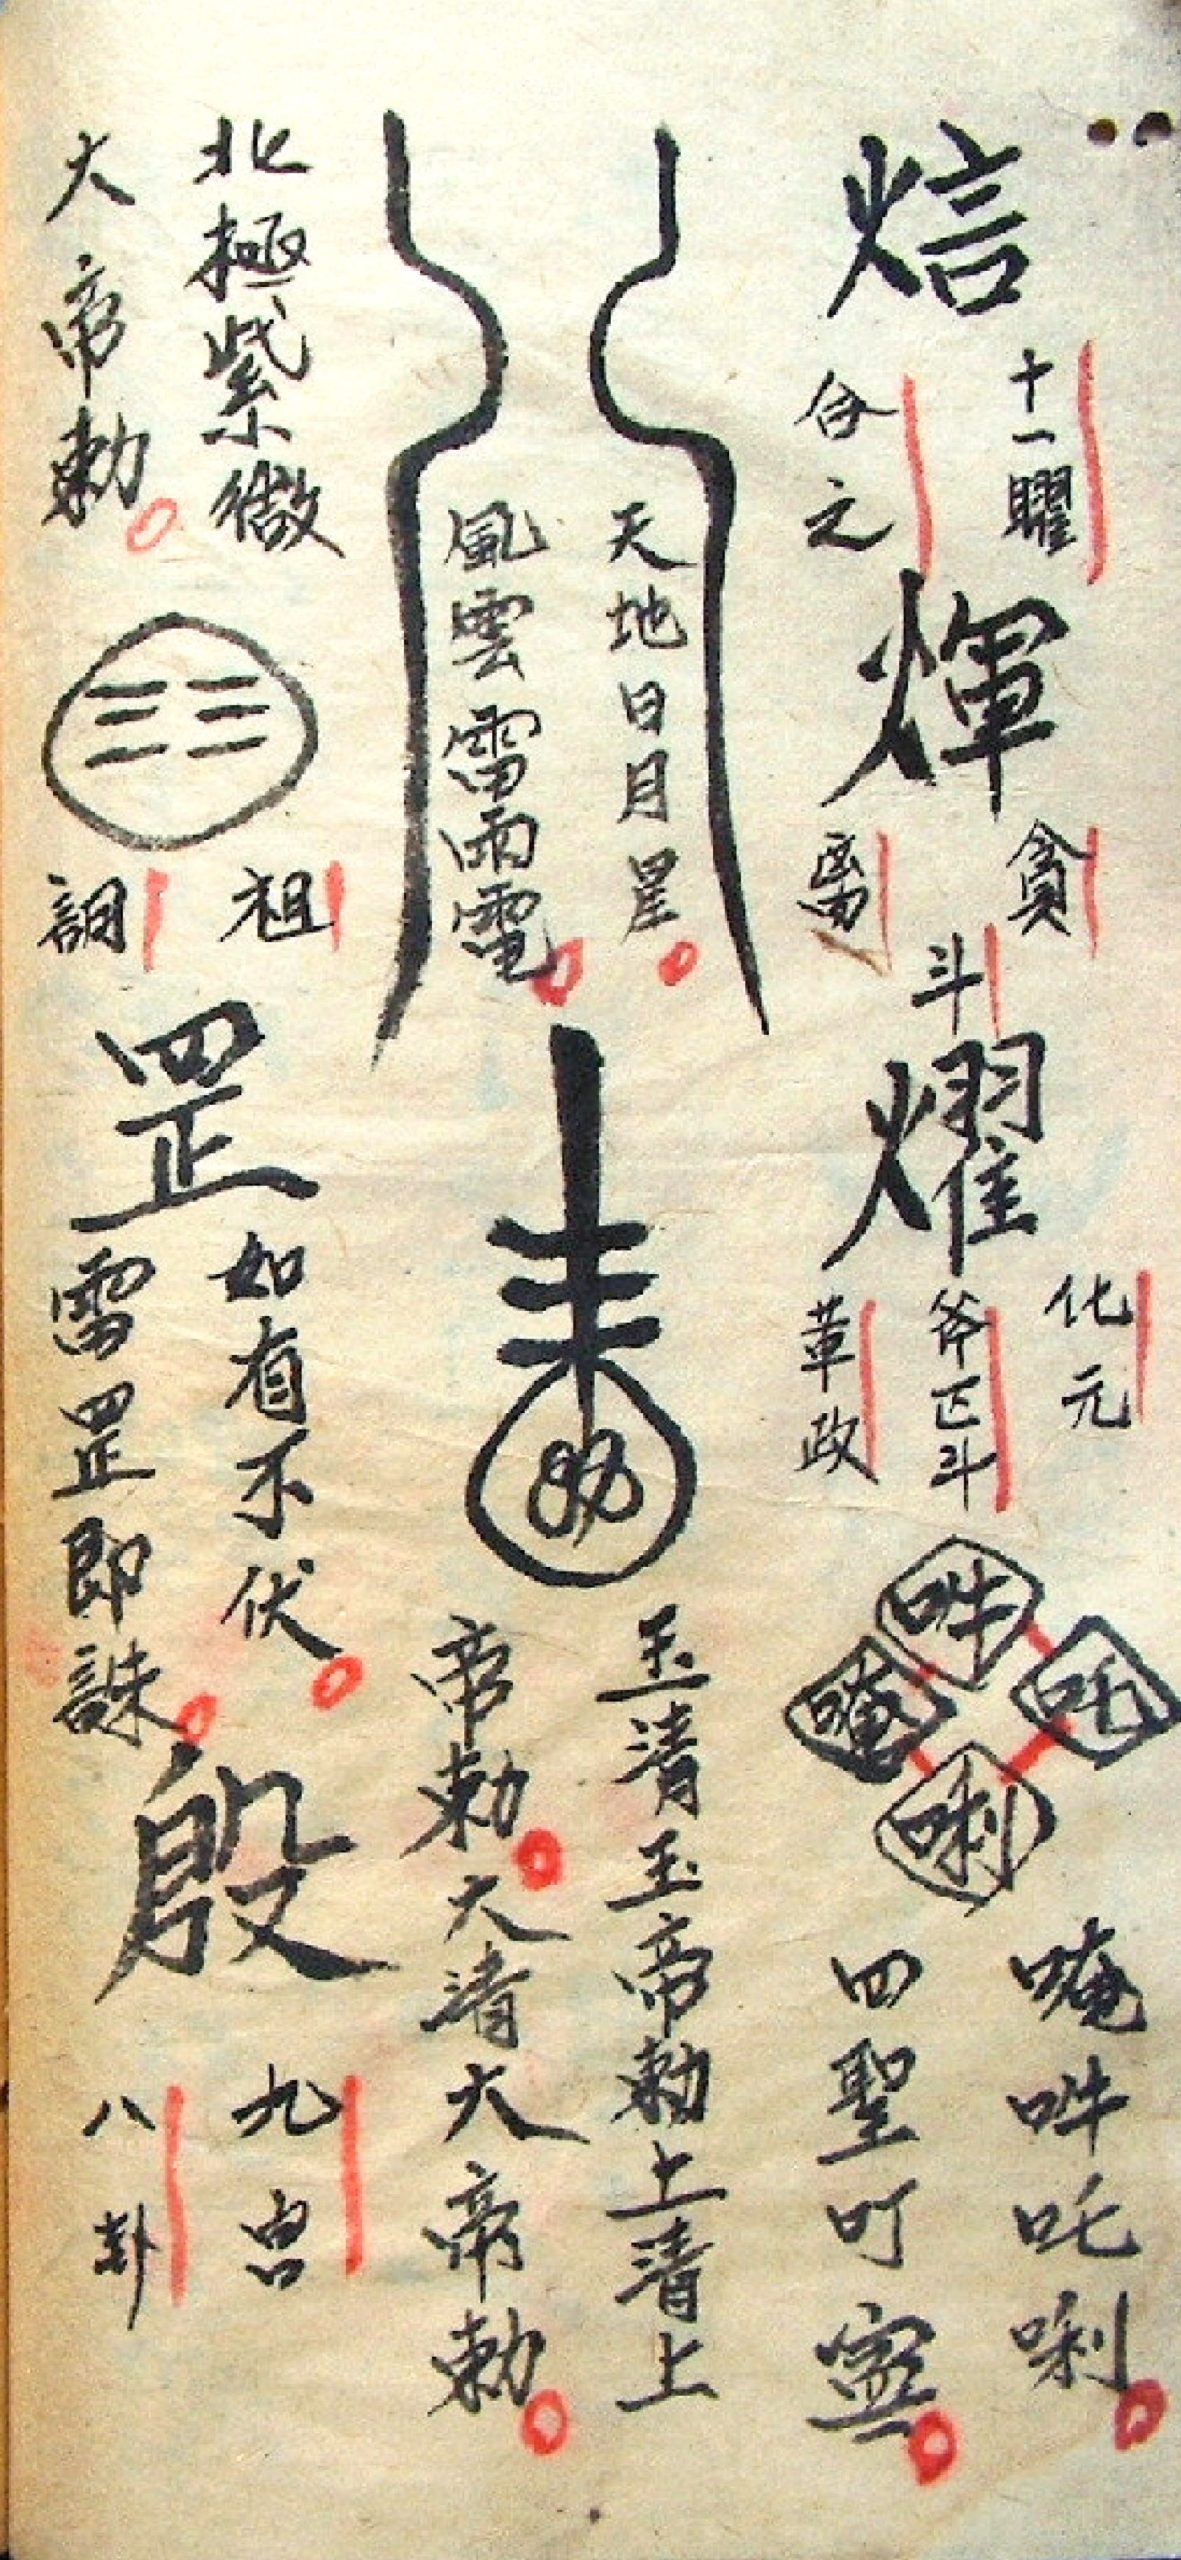 焙
十一曜
輝
貪
斗
耀
化元
革政
吽
吒
唎
唵吽吒唎
四聖叮寧
天地日月星
風雲雷雨電
玉清玉帝勅上清上
帝勅大清大帝勅
北極紫微
大帝勅
祖
罡
如有不伏
雷罡即誅
殷
九
八卦